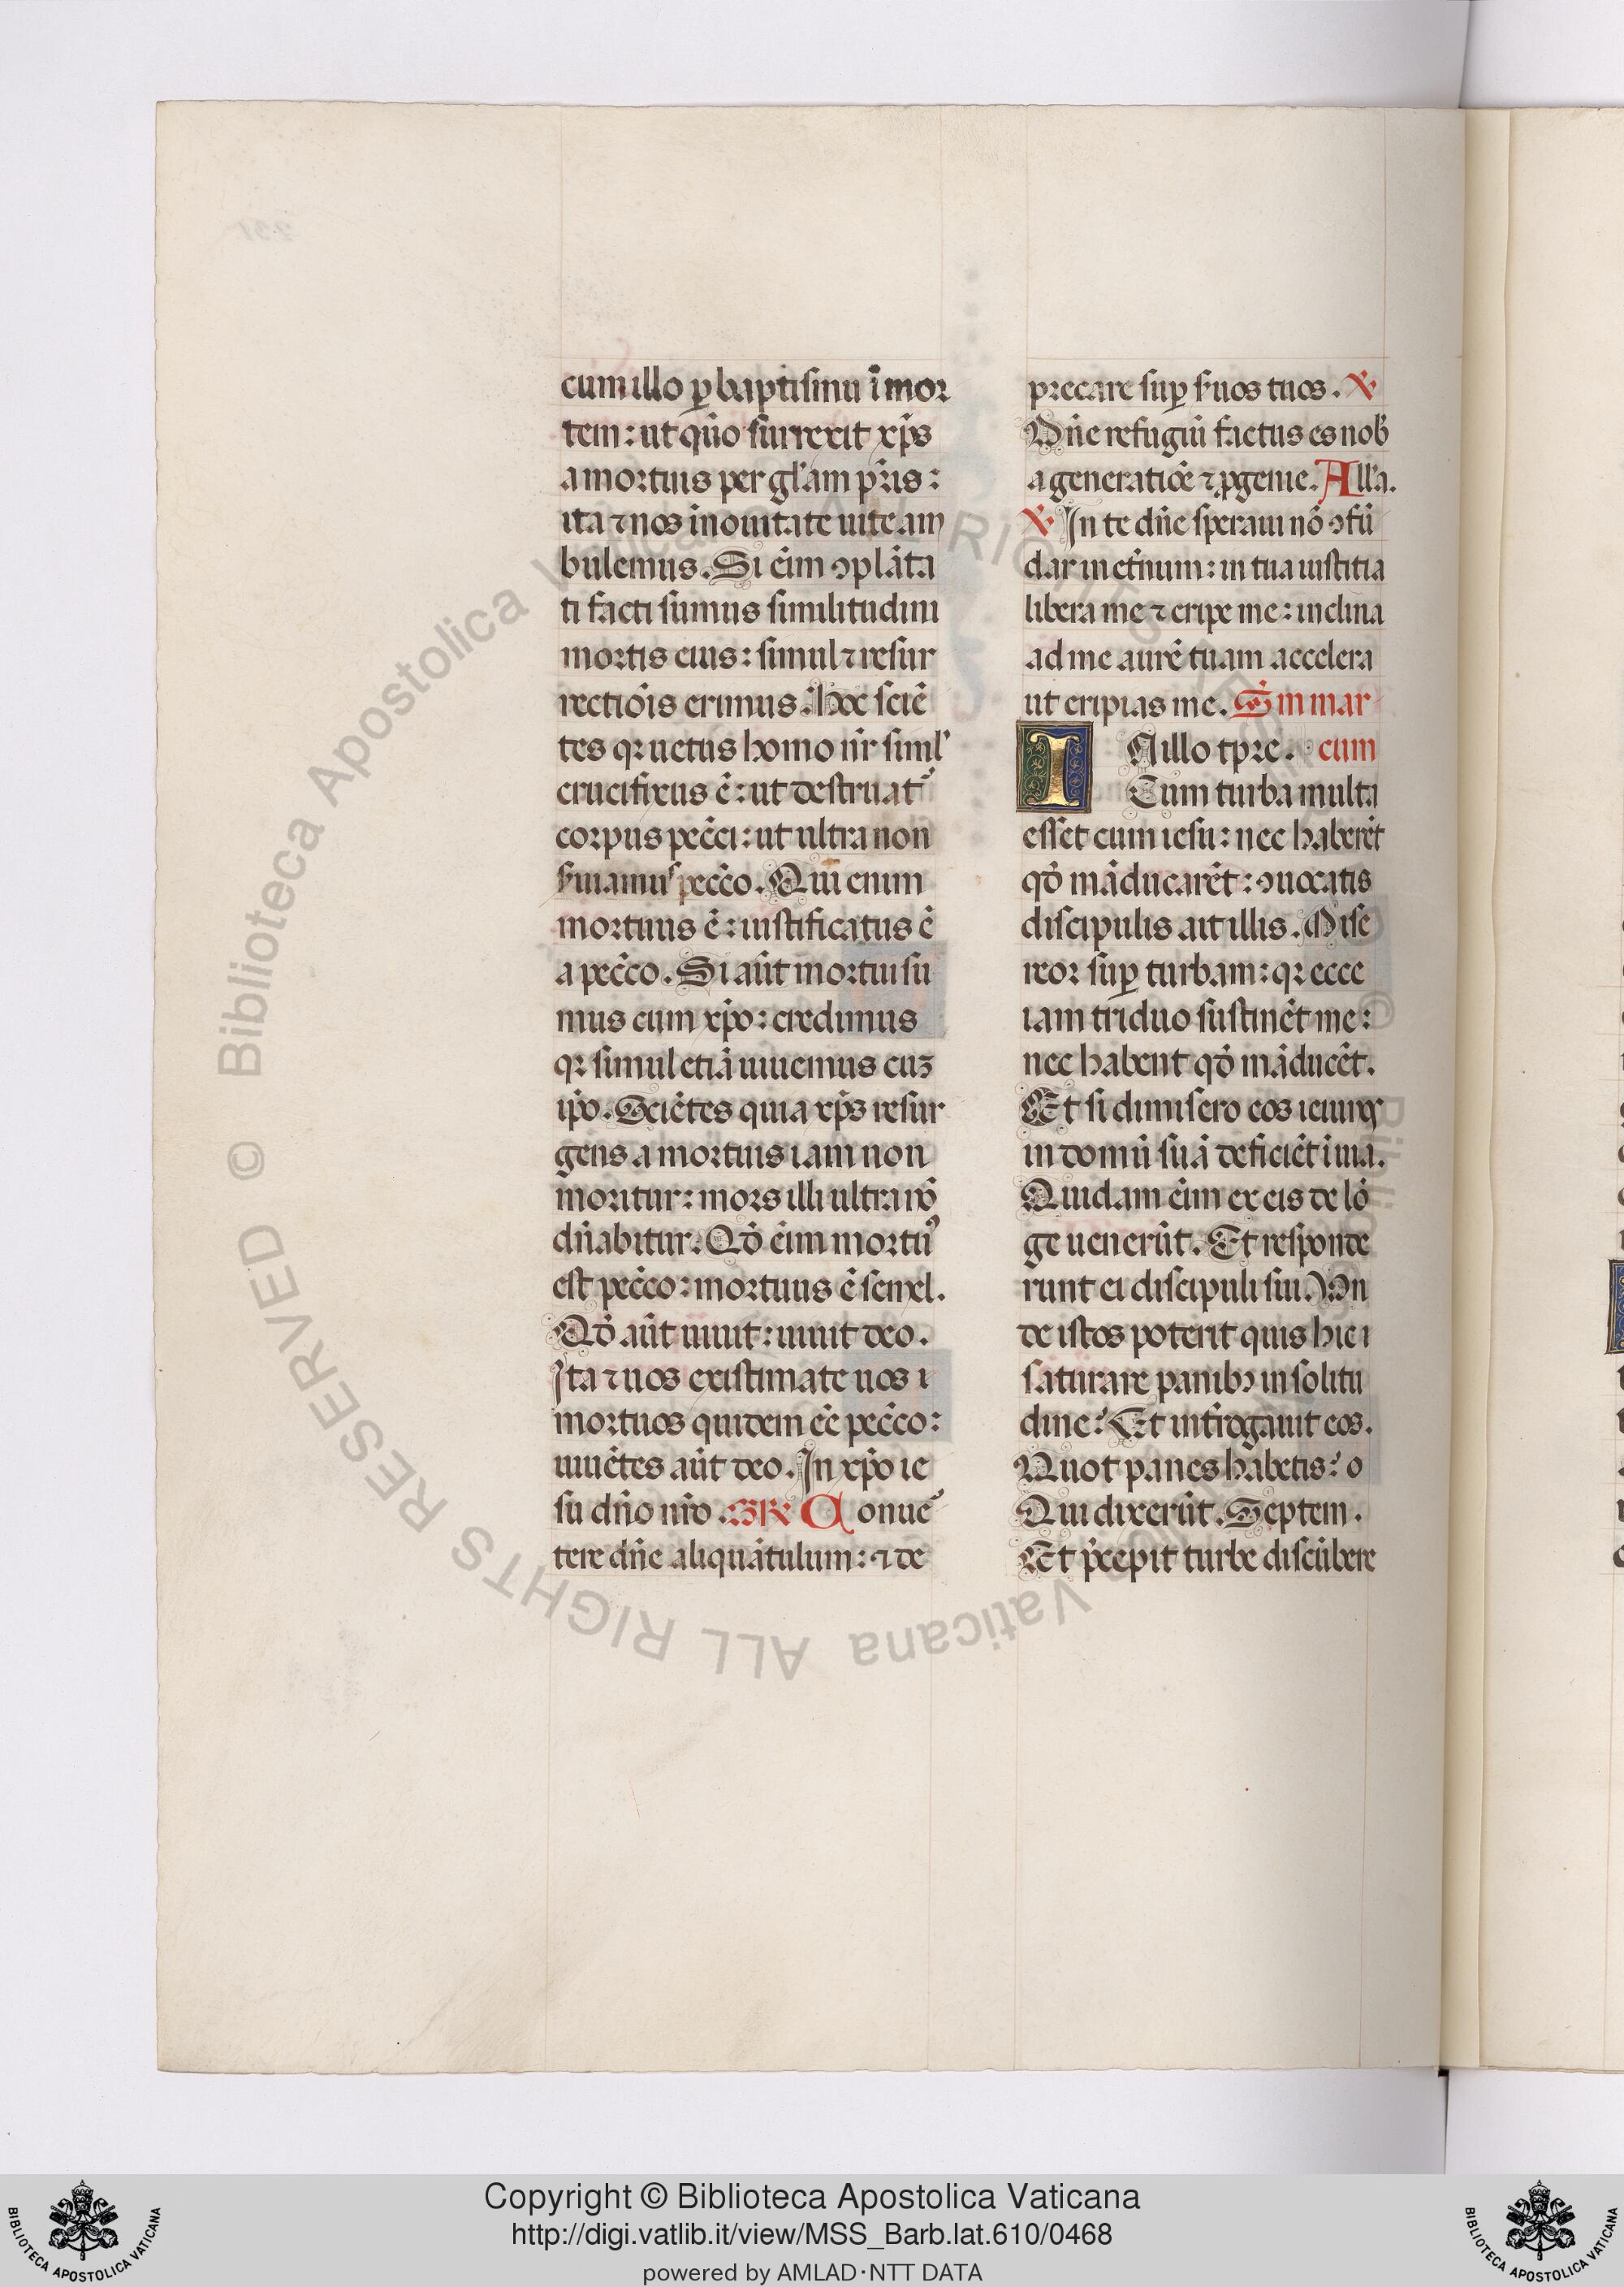 cum illo ꝑ baptismū ī mor
tem: ut quō surrexit xp̄s
a mortuis per glām pr̄is:
ita ⁊ nos in nouitate uite am
bulemus. Si eīm ꝯplāta
ti facti sumus similitudini
mortis eius: simul ⁊ resur
rectiōis erimus. Hoc sciē
tes qꝛ uetus homo nr̄ simł
crucifixus ē: ut destruat᷑
corpus pecc̄i: ut ultra non
s̄uiamus pecc̄o. Qui enim
mortuus ē: iustificatus ē
a pecc̄o. Si aūt mortui su
mus cum xp̄o: credimus
qꝛ simul etiā uiuemus cuꝫ
ip̄o. Sciētes quia xp̄s resur
gens a mortuis iam non
moritur: mors illi ultra nō
dn̄abitur. Qđ eīm mortuꝰ
est pecc̄o: mortuus ē semel.
Qđ aūt uiuit: uiuit deo.
Ita ⁊ uos existimate uos
mortuos quidem eē pecc̄o:
uiuētes aūt deo. In xp̄o ie
su dn̄o nr̄o. GR̄ Conue᷑
tere dn̄e aliquātulum: ⁊ de
precare suꝑ s̄uos tuos. ℣
Dn̄e refugiū factus es nob̄
a generatiōe ⁊ ꝓgenie. Alla̅.
℣ In te dn̄e speraui nō ꝯfū
dar in et̄num: in tua iustitia
libera me ⁊ eripe me: inclina
ad me aurē tuam accelera
ut eripias me. Sm mar
IN illo tp̄re. cum
Cum turba multa
esset cum iesu: nec haberēt
qđ māducarēt: ꝯuocatis
discipulis ait illis. Mise
reor suꝑ turbam: qꝛ ecce
iam triduo sustinēt me:
nec habent qđ māducēt.
Et si dimisero eos ieiunos
in domū suā deficiēt ī uia.
Quidam eīm ex eis de lō
ge uenerūt. Et responde
runt ei discipuli sui. Vn
de istos poterit quis hic
saturare panibꝫ in solitu
dine? Et int̄rogauit eos.
Quot panes habetis?
Qui dixerūt. Septem.
Et p̄cepit turbe discūbere
Copyright © Biblioteca Apostolica Vaticana
http://digi.vatlib.it/view/MSS_Barb.lat.610/0468
powered by AMLAD·NTT DATA
BIBLIOTECA APOSTOLICA VATICANA
BIBLIOTECA APOSTOLICA VATICANA
© Biblioteca Apostolica Vaticana ALL RIGHTS RESERVED
© Biblioteca Apostolica Vaticana ALL RIGHTS RESERVED